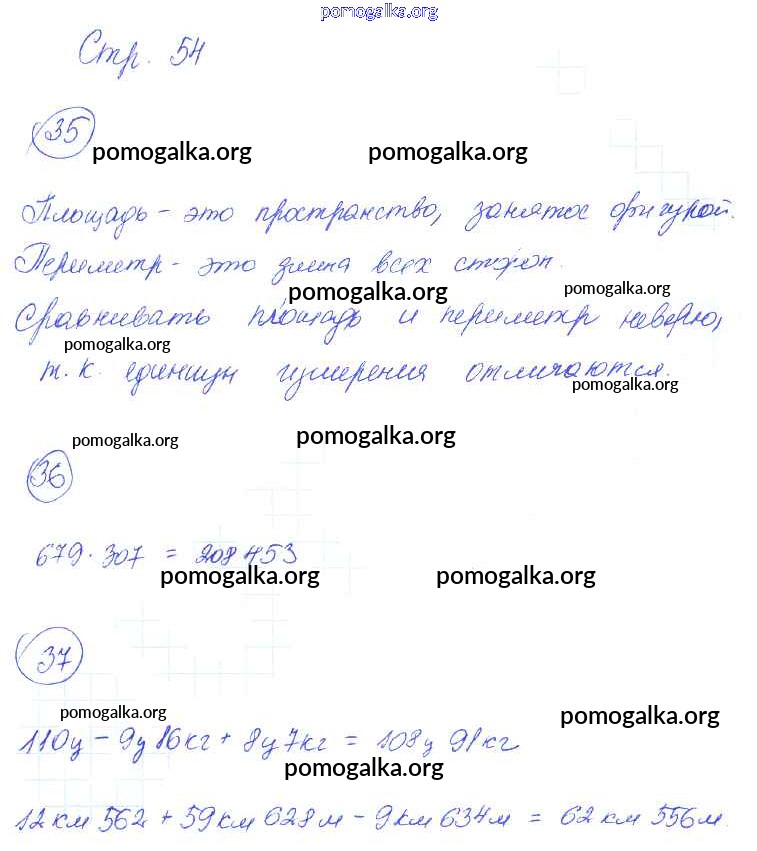 pomogalka.org
Стр. 54
35
pomogalka.org pomogalka.org
Площадь - это пространство, занятое фигурой.
Периметр - это длина всех сторон.
pomogalka.org pomogalka.org
Сравнивать площадь и периметр неверно,
pomogalka.org
т.к. единицы измерения отличаются.
pomogalka.org
pomogalka.org pomogalka.org
36
679 · 307 = 208 453
pomogalka.org pomogalka.org
37
pomogalka.org pomogalka.org
110ц - 9ц 16кг + 8ц 7кг = 108ц 91кг
pomogalka.org
12км 562 + 59км 628м - 9км 634м = 62км 556м.